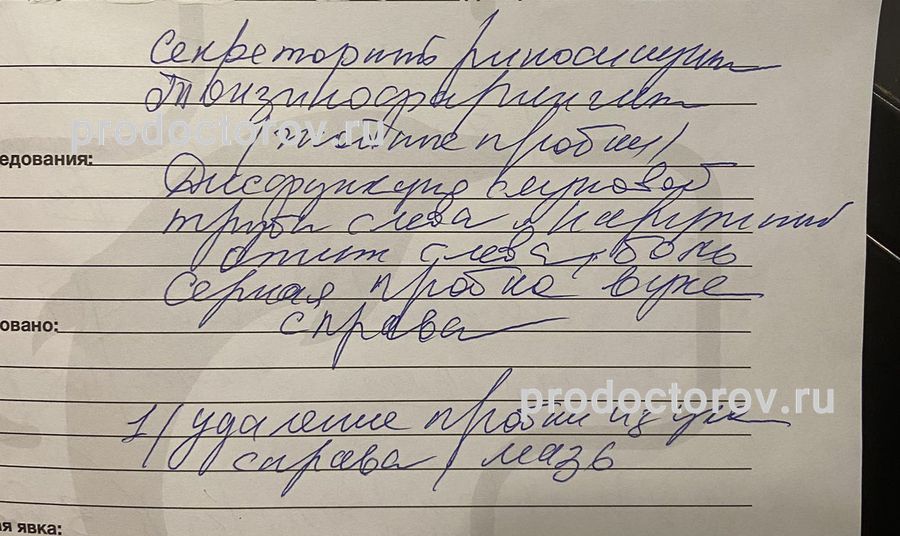 Секреторный риносинусит
Тонзилофарингит
prodoctorov.ru
пробки/
едования:
Дисфункция слуховой
трубы слева, наружный
отит слева, боль
Серная пробка в ухе
овано:
справа
prodoctorov.ru
1/ удаление пробки из уха
справа / мазь
я явка: